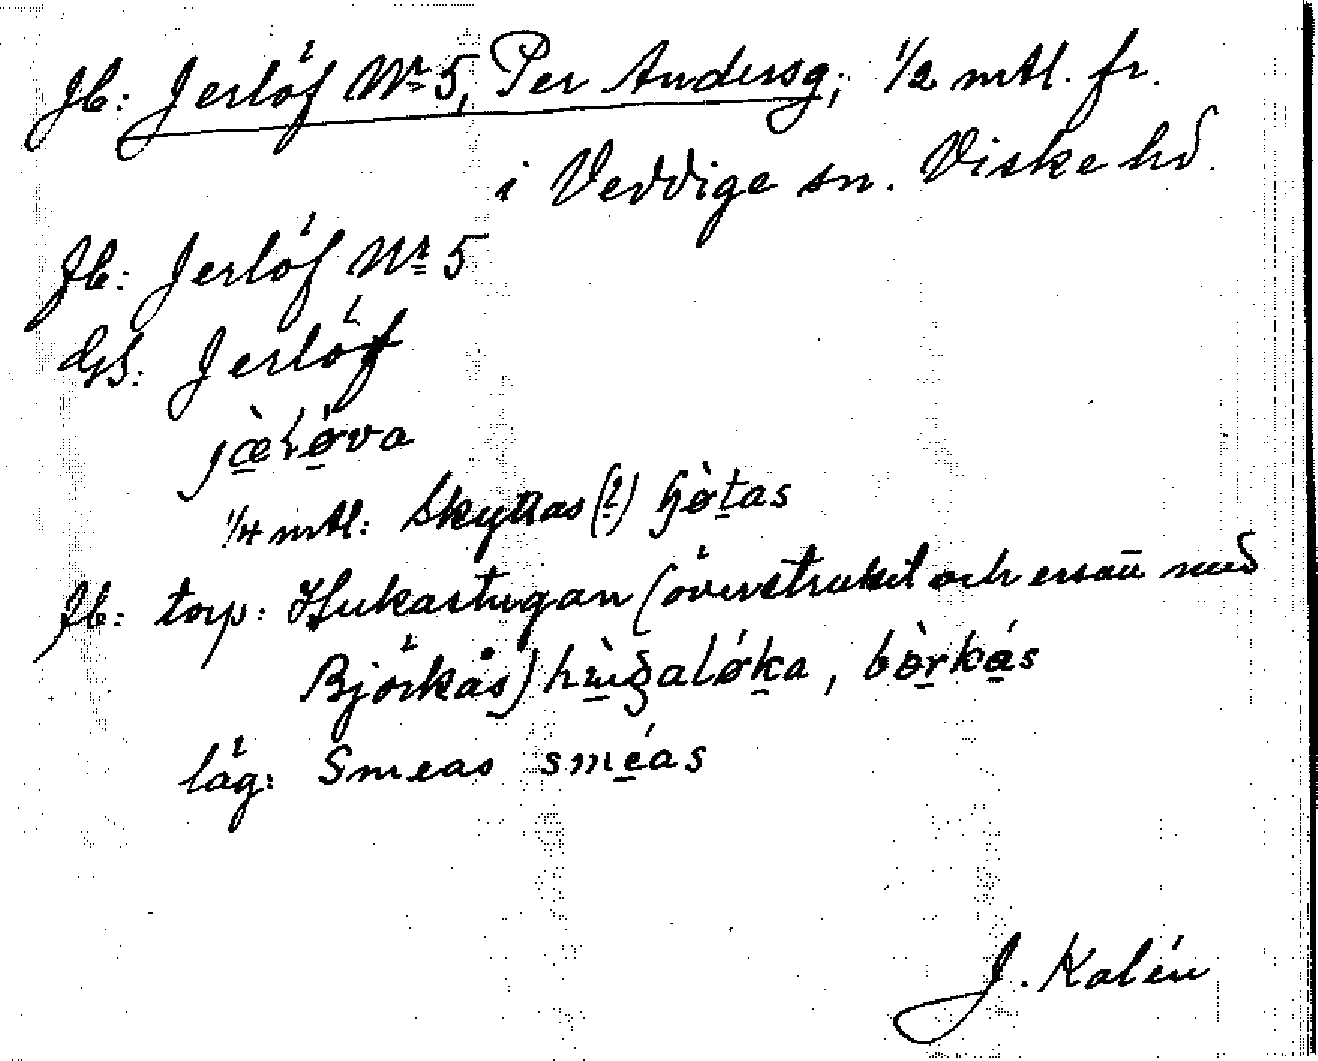 Jb: Jerlöf Nr 5, Per Andersg; 1/2 mtl. fr.
i Veddige sn. Viske hd.
Jb: Jerlöf Nr 5
GS: Jerlöf
1/4 mtl: Skyttas (?)
Jb: torp: Hukastugan (överstruket och ersatt med
Björkås)
låg: Smeas sméas
J. Kalén